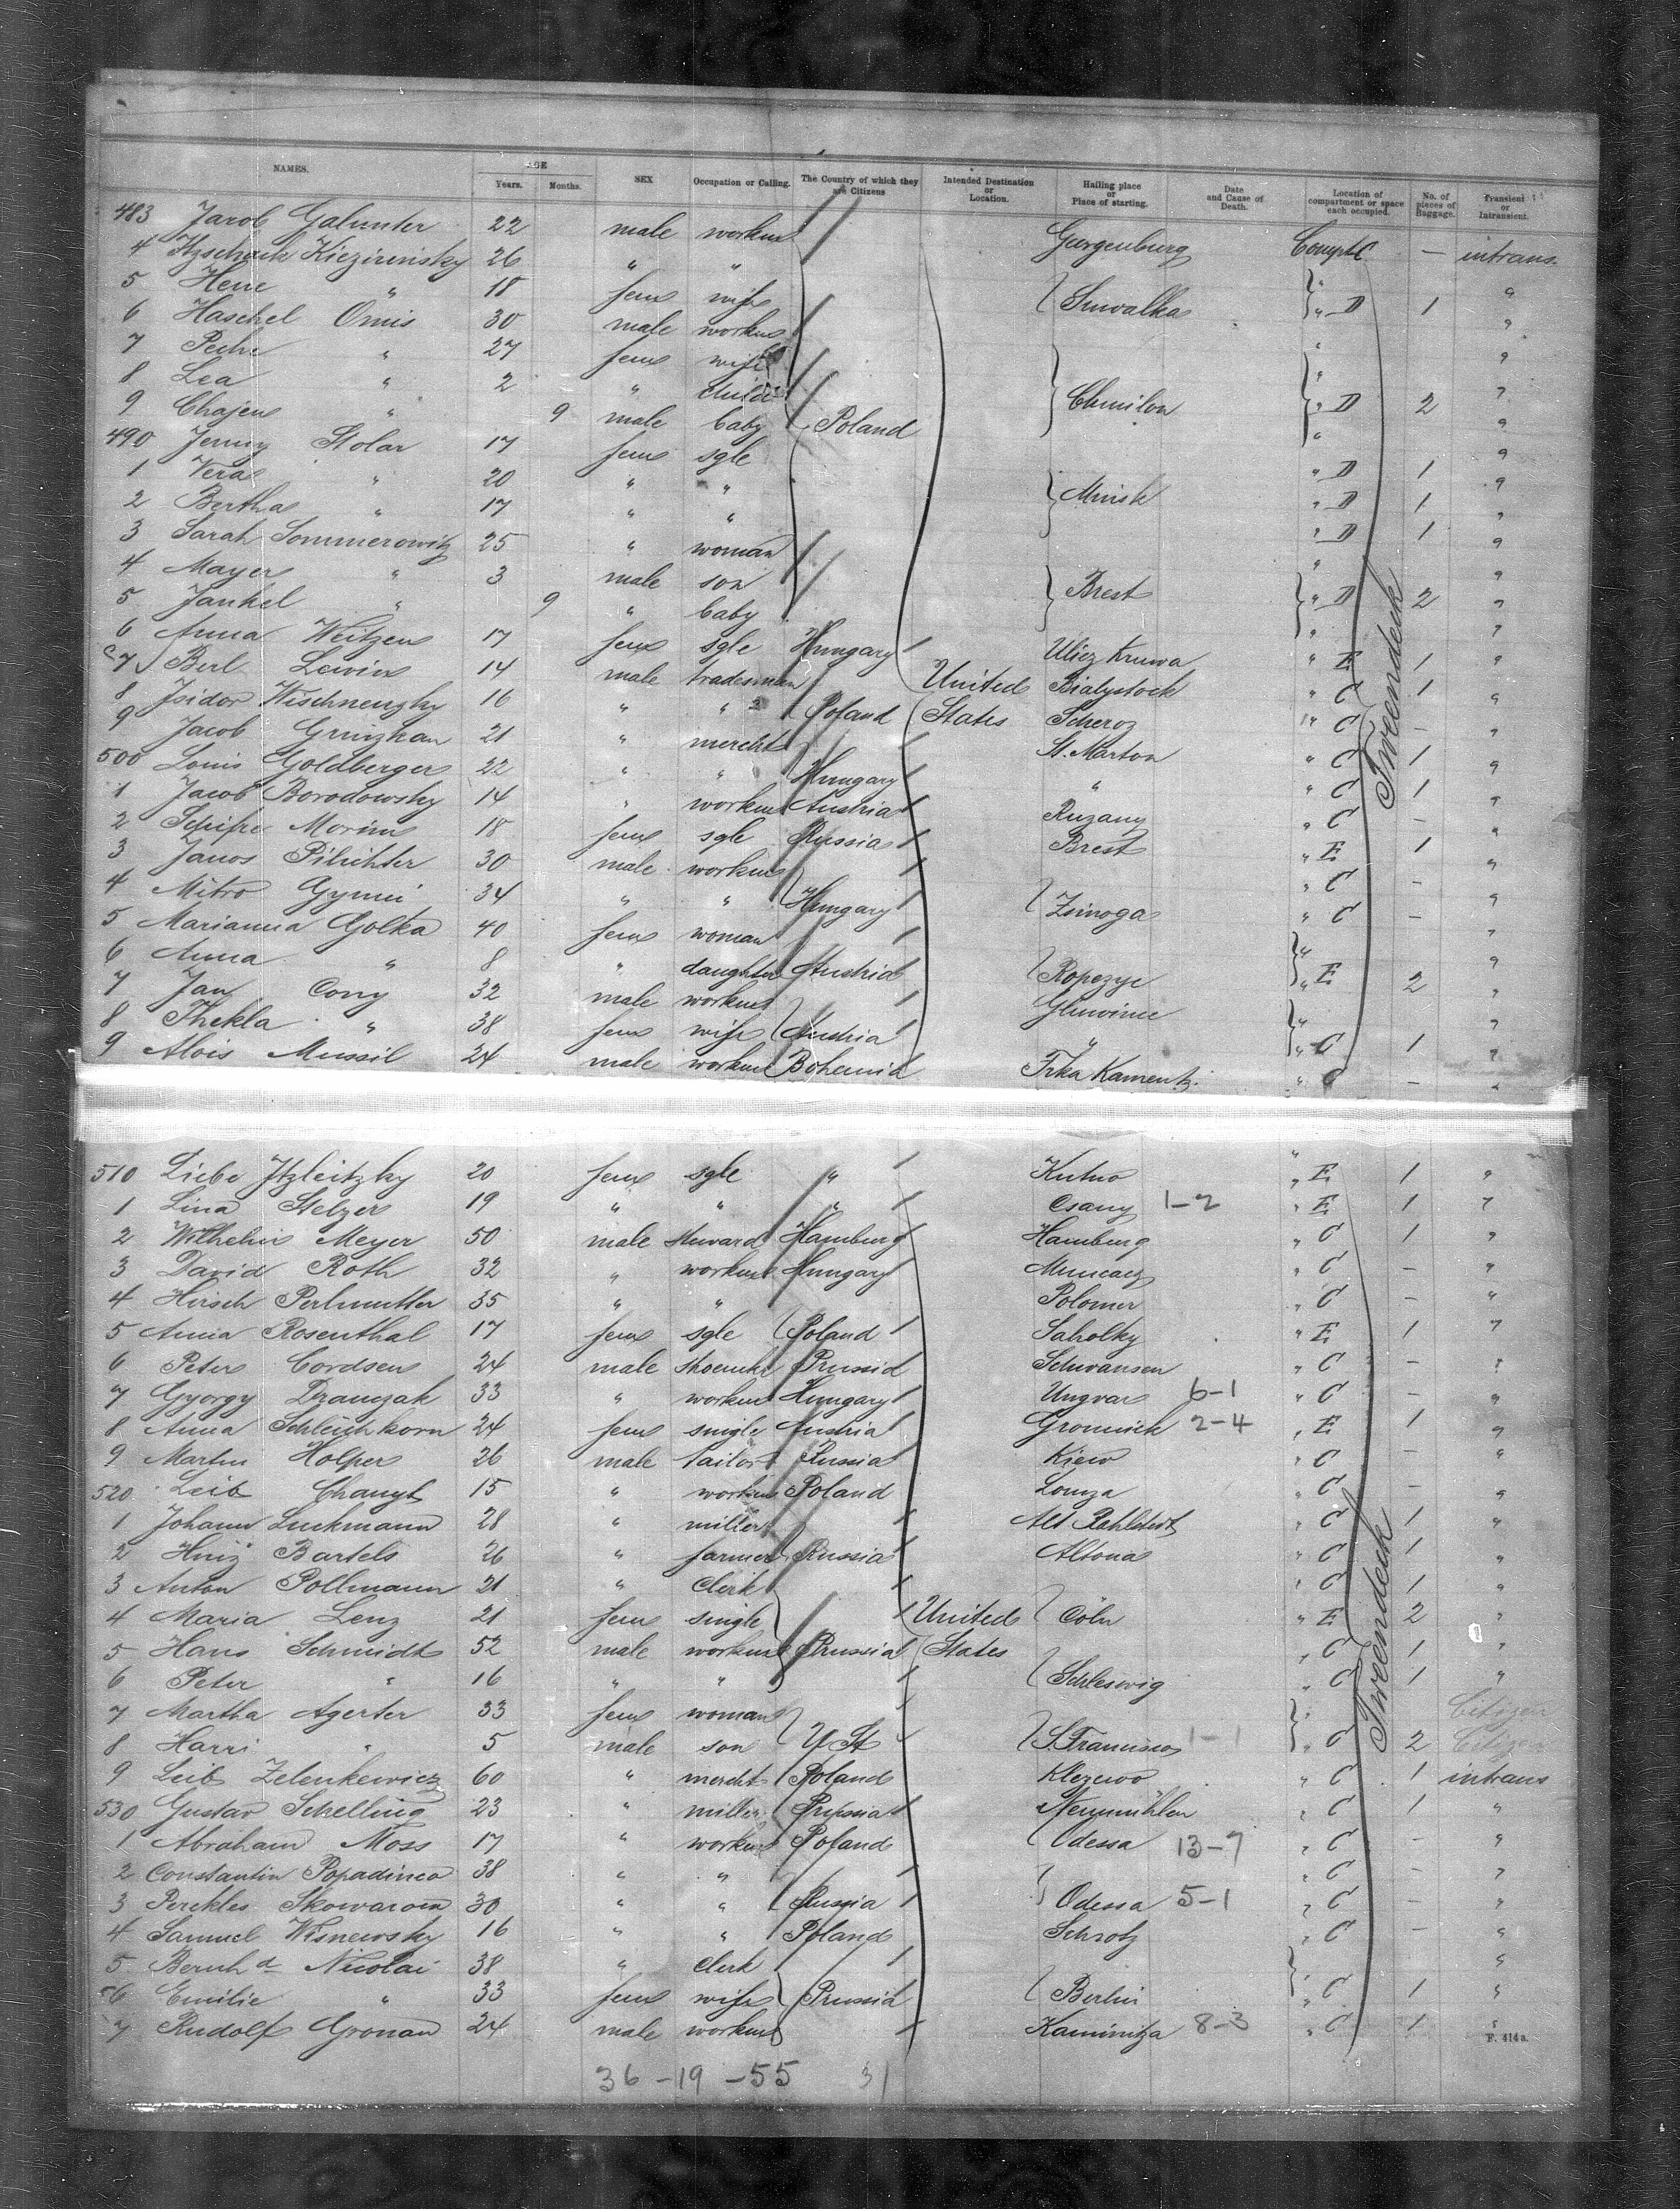 NAMES. AGE Years. Months. SEX Occupation or Calling. The Country of which they are Citizens Intended Destination or Location. Hailing place or Place of starting. Date and Cause of Death. Location of compartment or space each occupied. No. of pieces of Baggage. Transient or Intransient.
483 Jacob Galunter 22 male workm Gargenburg Compt C — intrans.
4 Itzschack Kiezirinsky 26 " "
5 Hene " 18 fem wife Suwalka " D 1 "
6 Haschel Omis 30 male workm "
7 Peche " 27 fem wife "
8 Lea " 2 " child Chmilow " D 2 "
9 Chajem " 9 male baby Poland "
490 Jenny Stolar 17 fem sgle " D 1 "
1 Vera " 20 " " Minsk " D 1 "
2 Bertha " 17 " " " D 1 "
3 Sarah Sommerowitz 25 " woman "
4 Mayer " 3 male son Brest " D 2 "
5 Jankel " 9 " baby "
6 Anna Weitzen 17 fem sgle Hungary Uliez Kruwa " E 1 "
7 Berl Lewin 14 male tradesman United Bialystock " C 1 "
8 Isidor Wischnengky 16 " " Poland States Scheroz " C — "
9 Jacob Grinzhan 21 " mercht St. Marton " C 1 "
500 Louis Goldberger 22 " " Hungary " " C 1 "
1 Jacob Borodowsky 14 " workm Austria Ruzany " C — "
2 Morim 18 fem sgle Russia Brest " E 1 "
3 Janos Pilichter 30 male workm " C — "
4 Mitro Gymi 34 " " Hungary Zsinoga " C — "
5 Marianna Golka 40 fem woman "
6 Anna " 8 " daughter Austria Ropczyc " E 2 "
7 Jan Cony 32 male workm Gliwinie "
8 Thekla " 38 fem wife Austria " " C 1 "
9 Alois Mussil 24 male workm Bohemia Frka Kamentz. " C — "
Tweendeck
510 Liebe Itzleitzky 20 fem sgle " Kutno " E 1 "
1 Lina Stelzer 19 " " " Csany 1-2 " E 1 "
2 Wilhelm Meyer 50 male steward Hamburg Hamburg " C 1 "
3 David Roth 32 " workm Hungary Muncacz " C — "
4 Hirsch Perlmutter 35 " " Polomer " C — "
5 Anna Rosenthal 17 fem sgle Poland Saholky " E 1 "
6 Peter Cordsen 24 male shoemkr Prussia Schwansen " C — "
7 Gyorgy Dranczak 33 " workm Hungary Ungvar 6-1 " C — "
8 Anna Schleichkorn 24 fem single Austria Gromnick 2-4 " E 1 "
9 Martin Holper 26 male tailor Russia Kiew " C — "
520 Leib Changt 15 " workm Poland Lomza " C — "
1 Johann Luckmann 28 " miller Alt Rahlstedt " C 1 "
2 Hinz Bartels 26 " farmer Russia Altona " C 1 "
3 Anton Pollmann 21 " clerk " C 1 "
4 Maria Lenz 21 fem single United Cöln " E 2 "
5 Hans Schmidt 52 male workm Prussia States " C 1 "
6 Peter " 16 " " Schleswig " C 1 "
7 Martha Agerter 33 fem woman Citizen
8 Harri " 5 male son U St S. Francisco 1-1 " C 2 Citizen
9 Leib Zelenkewicz 60 " mercht Poland Klezewo " C 1 intrans
530 Gustav Schelling 23 " miller Prussia Neumühlen " C 1 "
1 Abraham Moss 17 " workm Poland Odessa 13-7 " C — "
2 Constantin Popadinco 38 " " " C — "
3 Perekles Skowarom 30 " " Russia Odessa 5-1 " C — "
4 Samuel Wisnewsky 16 " " Poland Schrotz " C — "
5 Bernhd Nicolai 38 " clerk "
6 Emilie " 33 fem wife Prussia Berlin " C 1 "
7 Rudolf Gronau 24 male workm Kaminitza 8-3 " C 1 "
Tweendeck
F. 414a.
36-19-55 31